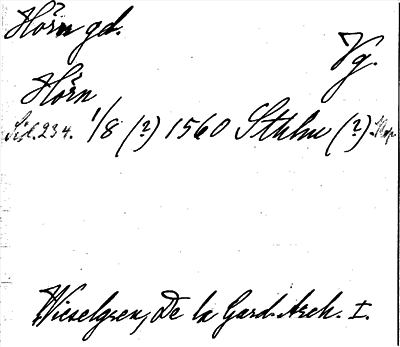 Hörn gd.
Vg.
Hörn
Sid. 234. 1/8 (?) 1560 Sthlm (?).
Wieselgren, De la Gard. Arch. I.